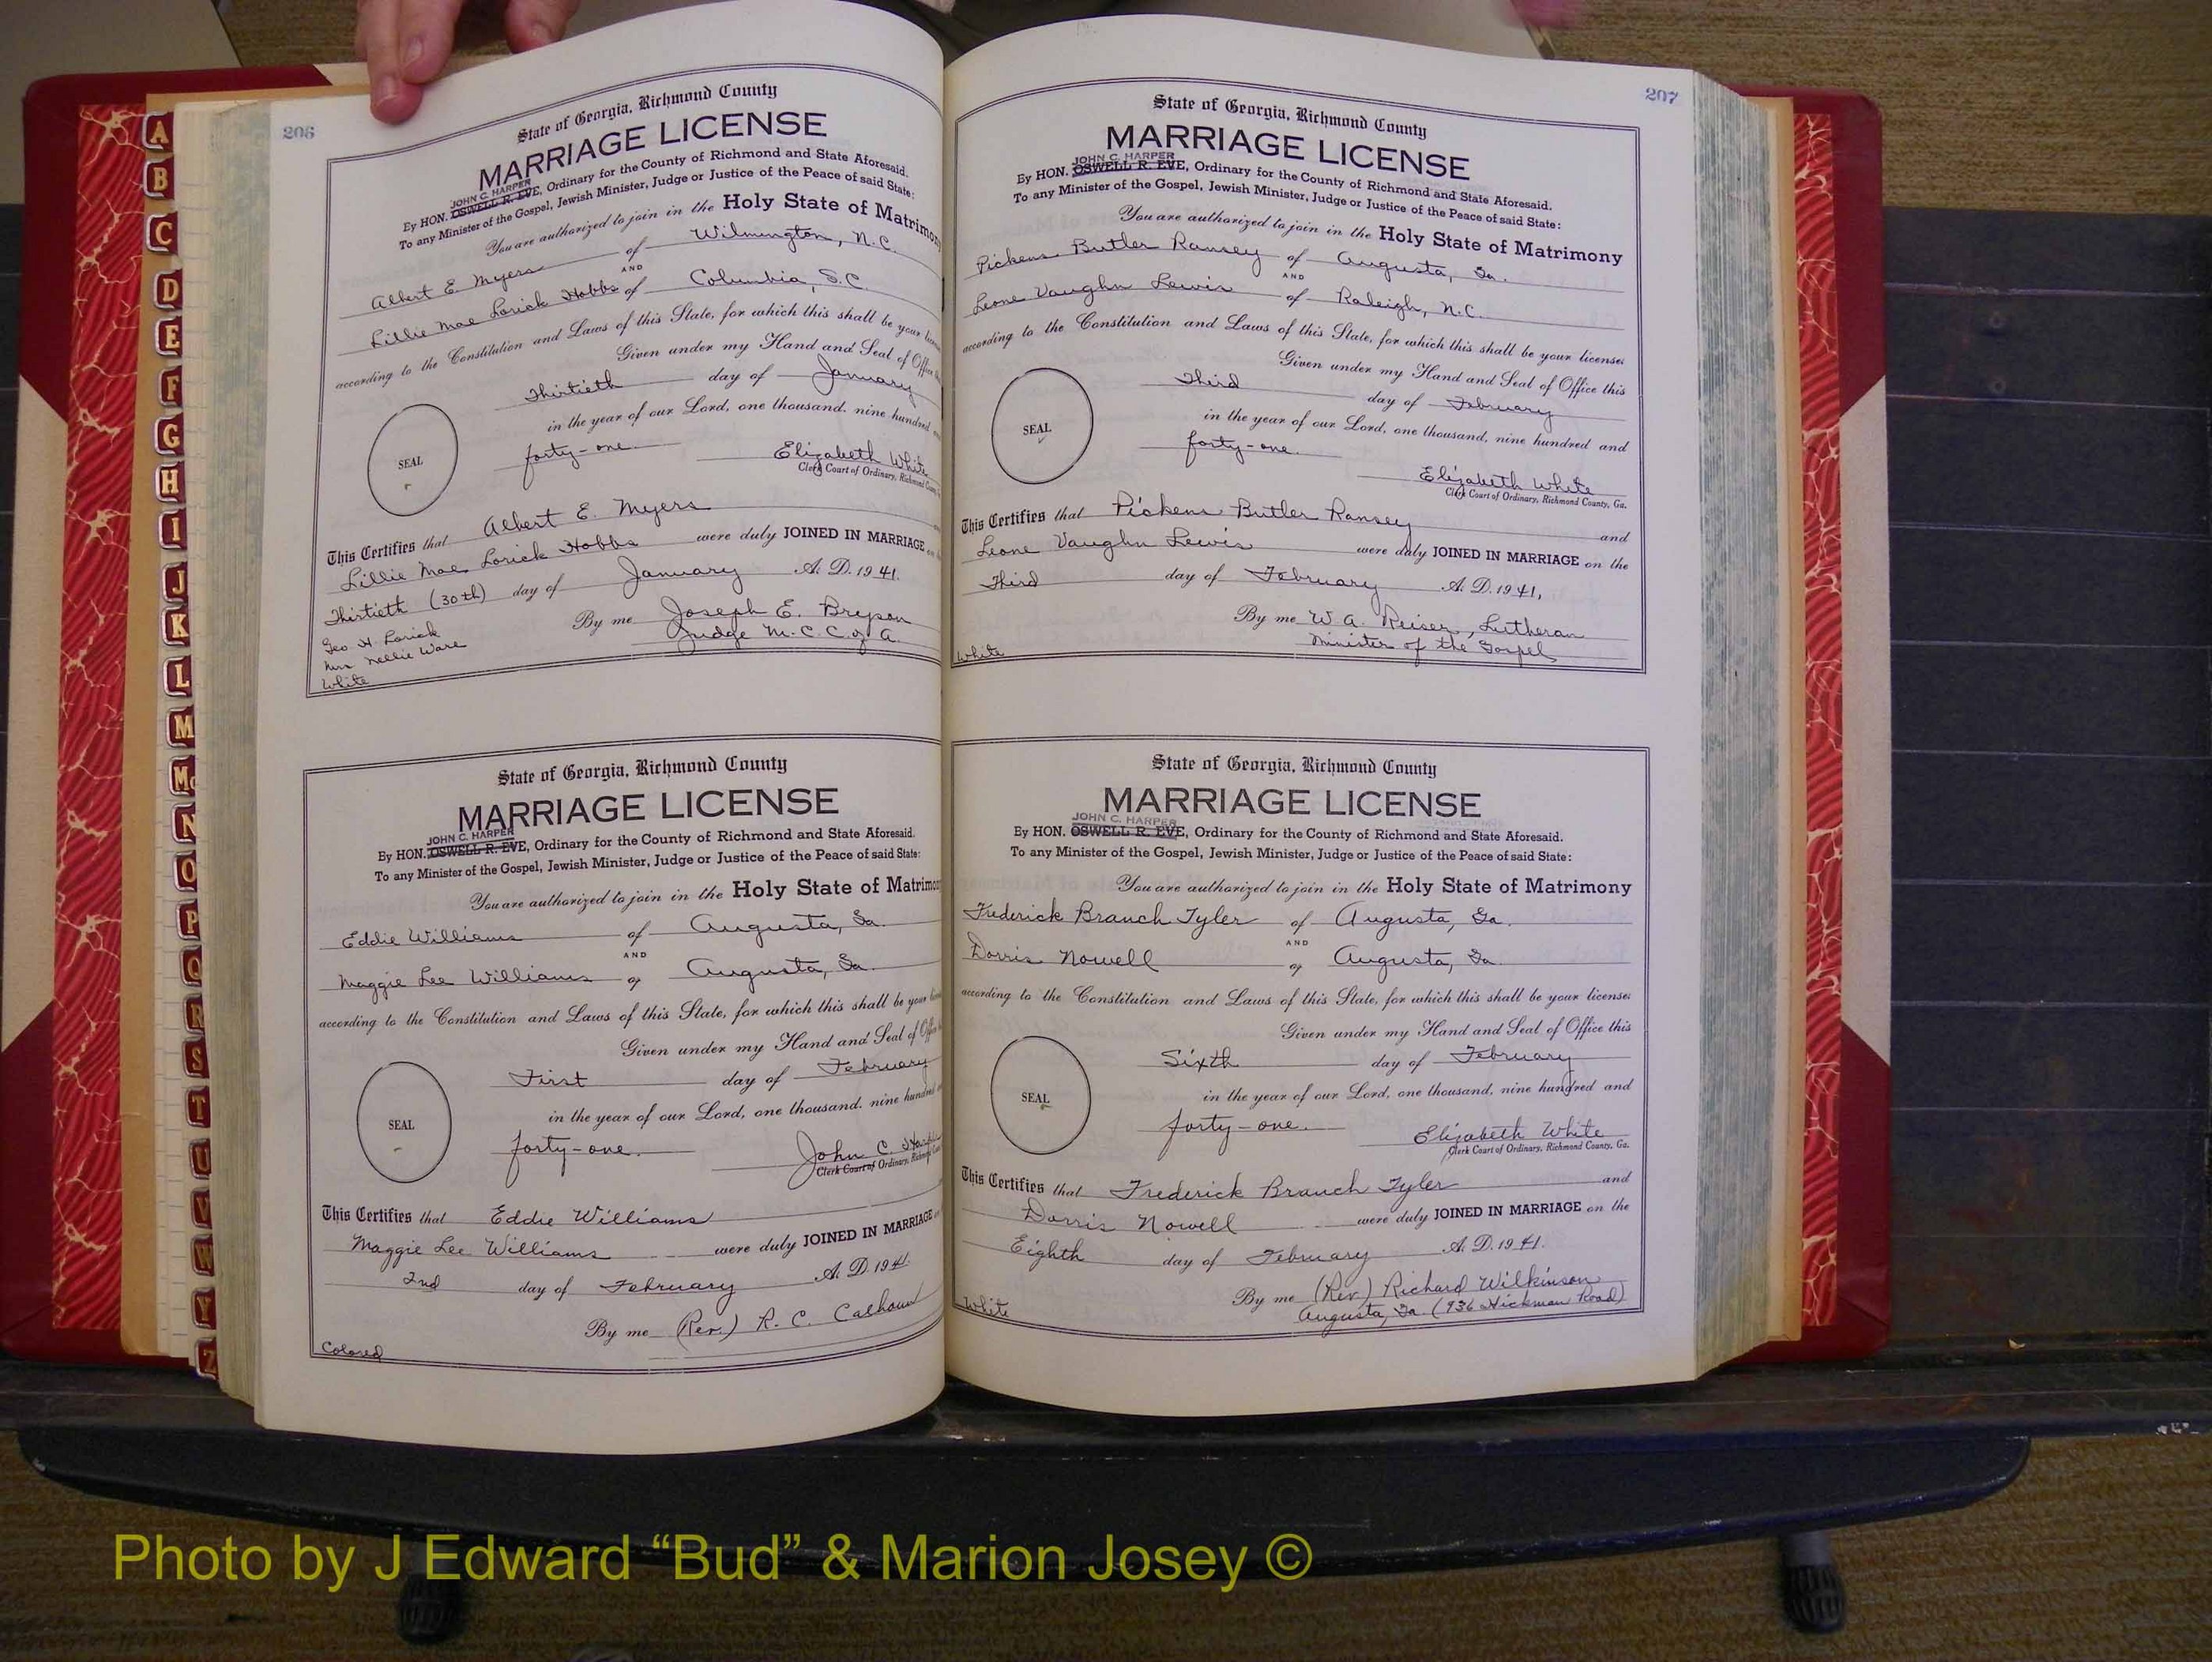 206
State of Georgia, Richmond County
MARRIAGE LICENSE
JOHN C. HARPER
By HON. OSWELL R. EVE, Ordinary for the County of Richmond and State Aforesaid.
To any Minister of the Gospel, Jewish Minister, Judge or Justice of the Peace of said State:
You are authorized to join in the Holy State of Matrimony
Albert E. Myers of Wilmington, N.C.
AND
Lillie Mae Lorick Hobbs of Columbia, S.C.
according to the Constitution and Laws of this State, for which this shall be your
Given under my Hand and Seal of Office
Thirtieth day of January
in the year of our Lord, one thousand, nine hundred
SEAL
forty-one. Elizabeth White
Clerk Court of Ordinary, Richmond
This Certifies that Albert E. Myers
Lillie Mae Lorick Hobbs were duly JOINED IN MARRIAGE
Thirtieth (30th) day of January A. D. 1941.
By me Joseph E. Bryson
Judge M.C.C. of A.
Geo H. Lorick
Mrs Nellie Ware
White
State of Georgia, Richmond County
MARRIAGE LICENSE
JOHN C. HARPER
By HON. OSWELL R. EVE, Ordinary for the County of Richmond and State Aforesaid.
To any Minister of the Gospel, Jewish Minister, Judge or Justice of the Peace of said State:
You are authorized to join in the Holy State of Matrimony
Eddie Williams of Augusta, Ga.
AND
Maggie Lee Williams of Augusta, Ga.
according to the Constitution and Laws of this State, for which this shall be your
Given under my Hand and Seal of Office
First day of February
in the year of our Lord, one thousand, nine hundred
SEAL
forty-one. John C.
Clerk Court of Ordinary, Richmond
This Certifies that Eddie Williams
Maggie Lee Williams were duly JOINED IN MARRIAGE
2nd day of February A. D. 1941.
By me (Rev.) R. C. Calhoun
Colored
207
State of Georgia, Richmond County
MARRIAGE LICENSE
JOHN C. HARPER
By HON. OSWELL R. EVE, Ordinary for the County of Richmond and State Aforesaid.
To any Minister of the Gospel, Jewish Minister, Judge or Justice of the Peace of said State:
You are authorized to join in the Holy State of Matrimony
Pickens Butler Ramsey of Augusta, Ga.
AND
Leone Vaughn Lewis of Raleigh, N.C.
according to the Constitution and Laws of this State, for which this shall be your license:
Given under my Hand and Seal of Office this
Third day of February
in the year of our Lord, one thousand, nine hundred and
SEAL
forty-one.
Elizabeth White
Clerk Court of Ordinary, Richmond County, Ga.
This Certifies that Pickens Butler Ramsey and
Leone Vaughn Lewis were duly JOINED IN MARRIAGE on the
Third day of February A. D. 1941,
By me W. A. Reiser, Lutheran
Minister of the Gospel
White
State of Georgia, Richmond County
MARRIAGE LICENSE
JOHN C. HARPER
By HON. OSWELL R. EVE, Ordinary for the County of Richmond and State Aforesaid.
To any Minister of the Gospel, Jewish Minister, Judge or Justice of the Peace of said State:
You are authorized to join in the Holy State of Matrimony
Frederick Branch Tyler of Augusta, Ga.
AND
Dorris Nowell of Augusta, Ga.
according to the Constitution and Laws of this State, for which this shall be your license:
Given under my Hand and Seal of Office this
Sixth day of February
in the year of our Lord, one thousand, nine hundred and
SEAL
forty-one.
Elizabeth White
Clerk Court of Ordinary, Richmond County, Ga.
This Certifies that Frederick Branch Tyler and
Dorris Nowell were duly JOINED IN MARRIAGE on the
Eighth day of February A. D. 1941.
By me (Rev.) Richard Wilkinson
Augusta, Ga. (936 Hickman Road)
White
A
B
C
D
E
F
G
H
I
J
K
L
M
Mc
N
O
P
Q
R
S
T
U
V
W
Y
Z
Photo by J Edward “Bud” & Marion Josey ©